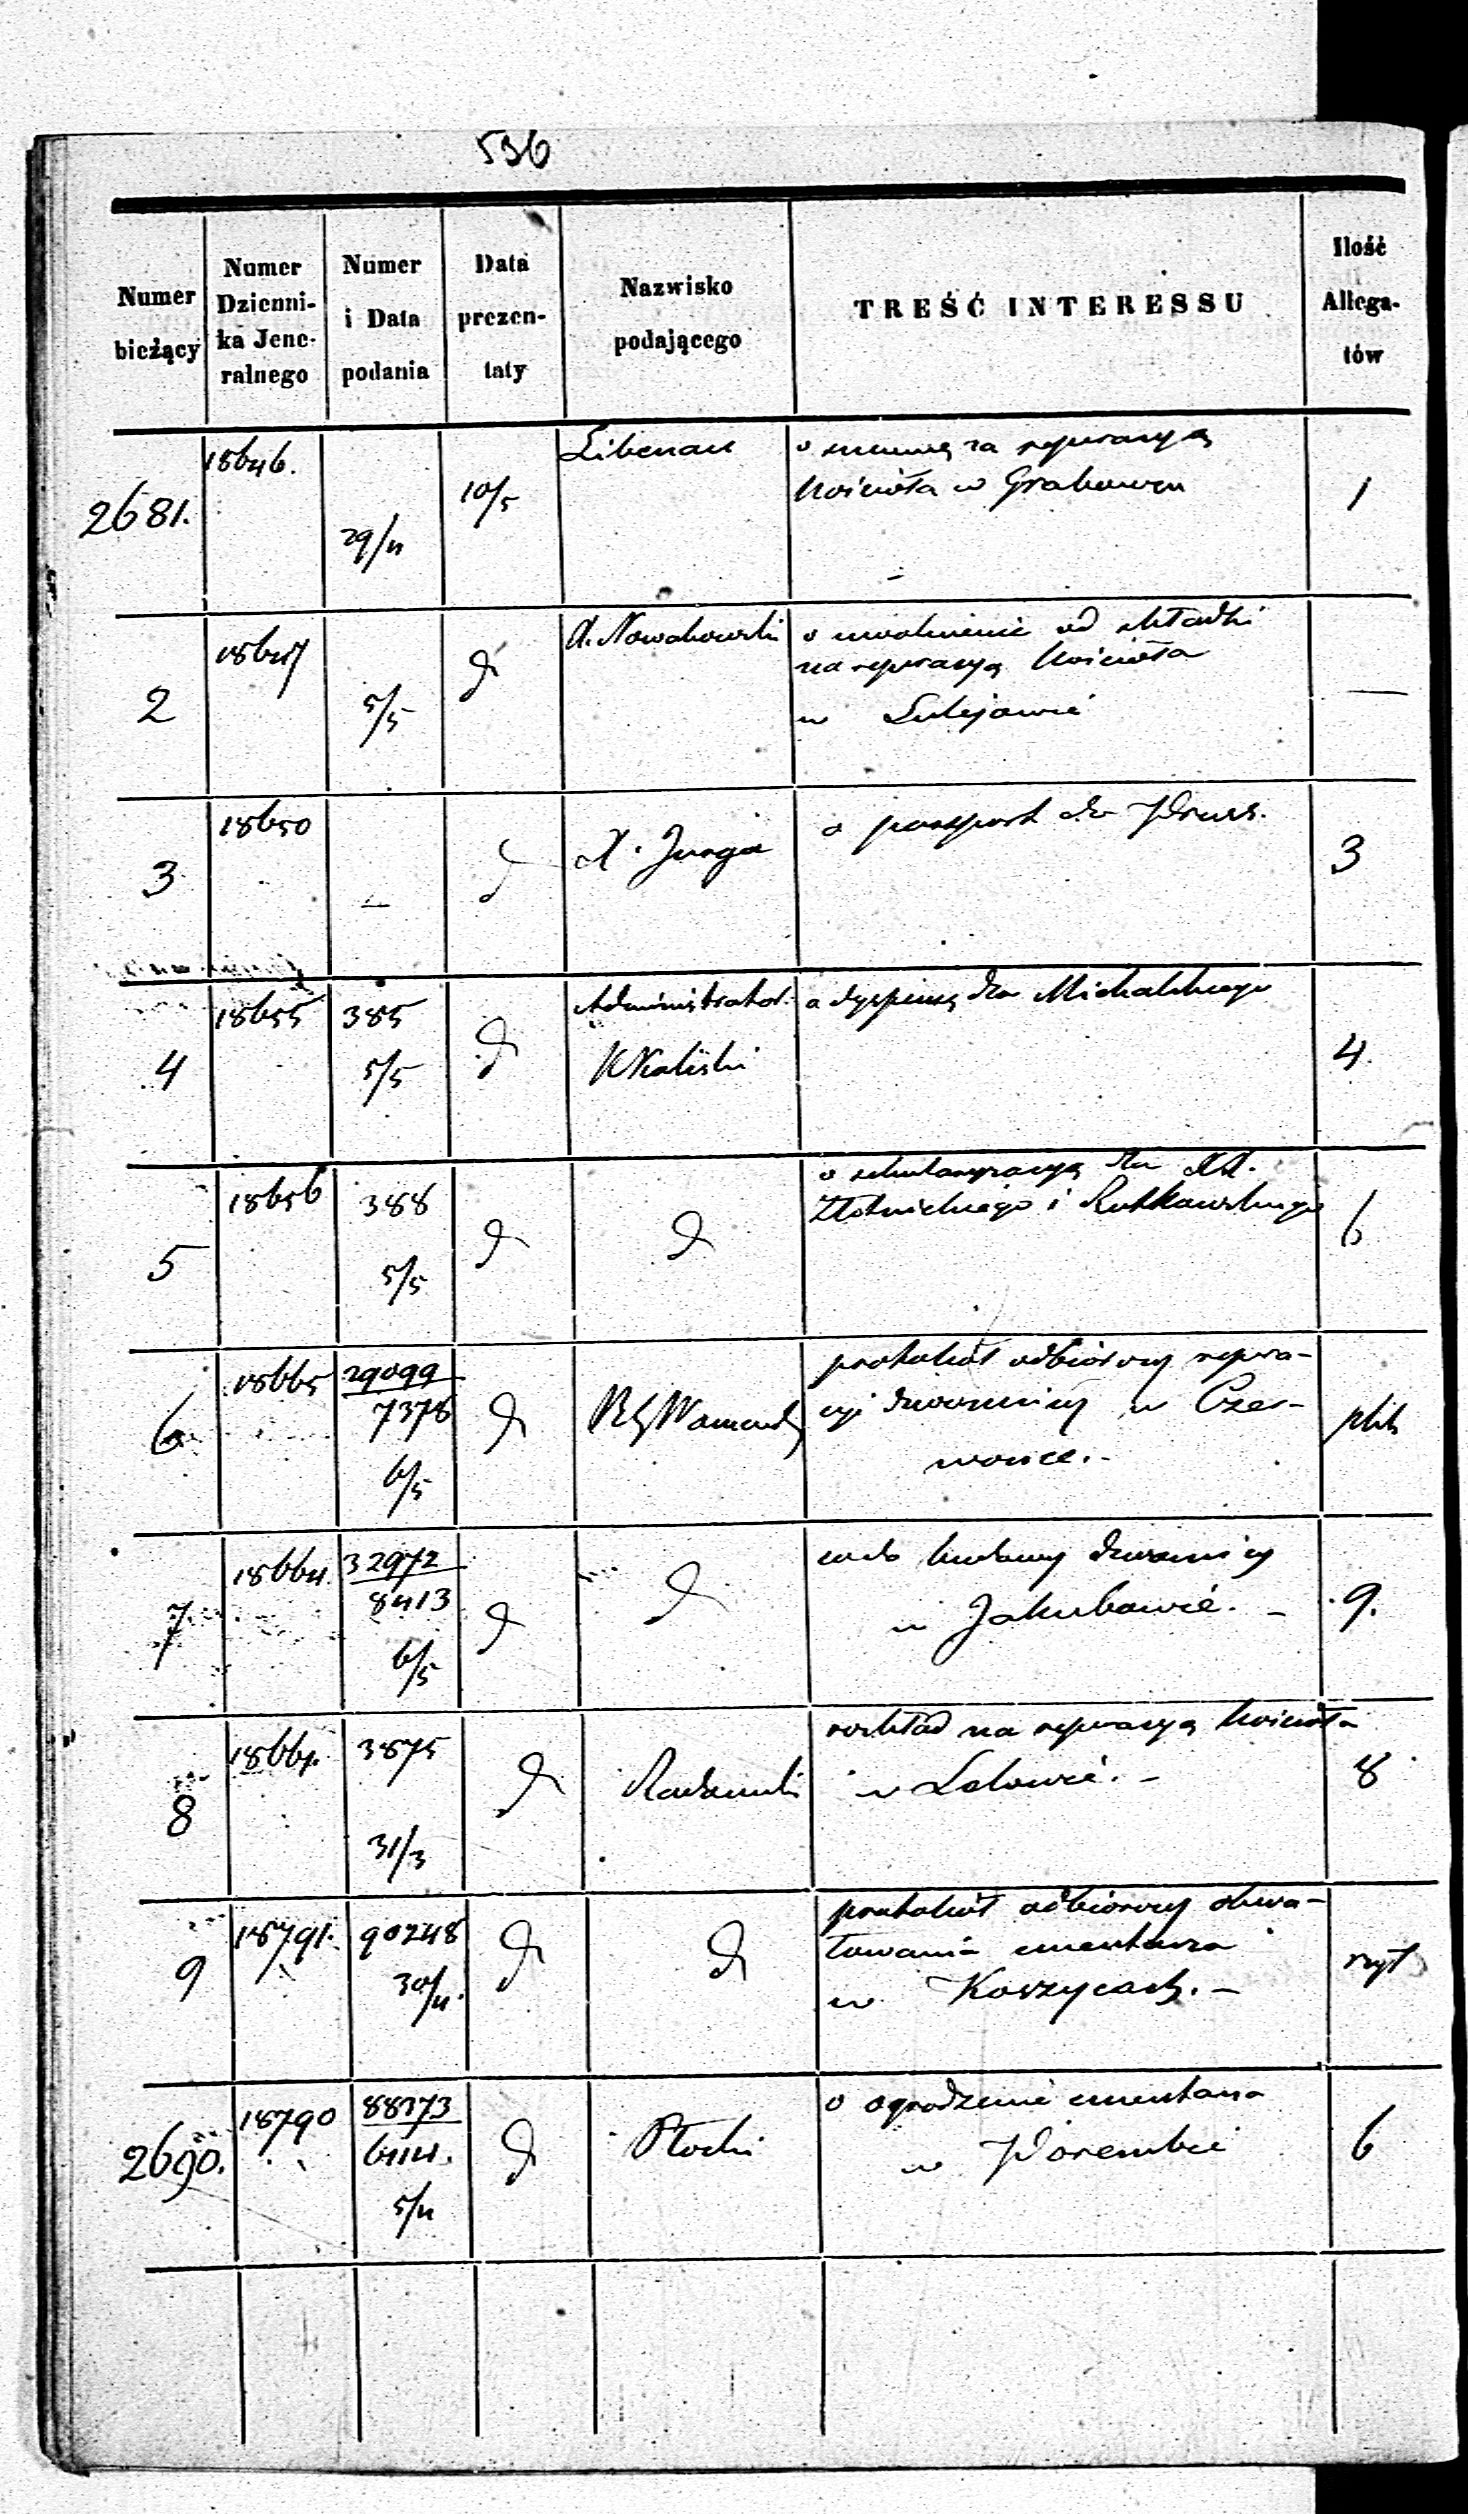 536
Numer bieżący
Numer Dzienni-ka Jene-ralnego
Numer i Data podania
Data prezen-taty
Nazwisko podającego
TREŚĆ INTERESSU
Ilość Allega-tów
2681. 18646. 29/4 10/5 Libenau o summę za reperacyą 1
kościoła w Grabowcu
2 18647 5/5 d X. Nowakowski o uwolnienie od składki —
na reperacyą kościoła
w Sulejowie
3 18650 — d X. Jurga o paszport do Pruss. 3
4 18655 385 5/5 d Administrator o dyspensę dla Michalskiego 4
K Kaliski
5 18656 388 5/5 d d o sekularyzacyą dla XX. 6
Złotnickiego i Rutkowskiego
6 18665 29099 7378 6/5 d protokół odbiorczy repera-
cyi dzwonnicy w Czer-
wonce.-
7 18664. 32972 8413 6/5 d d co do budowy dzwonnicy 9.
w Jakubowie. -
8 3875 31/3 d Radomski rozkład na reperacyą kościoła 8
w Lelowie. -
9 18791. 90248 30/4. d d protokół odbiorczy obwa-
łowania cmentarza
w Koszycach. -
2690. 18790 88373 6414. 5/4 d Płocki o ogrodzenie cmentarza 6
w Porembie